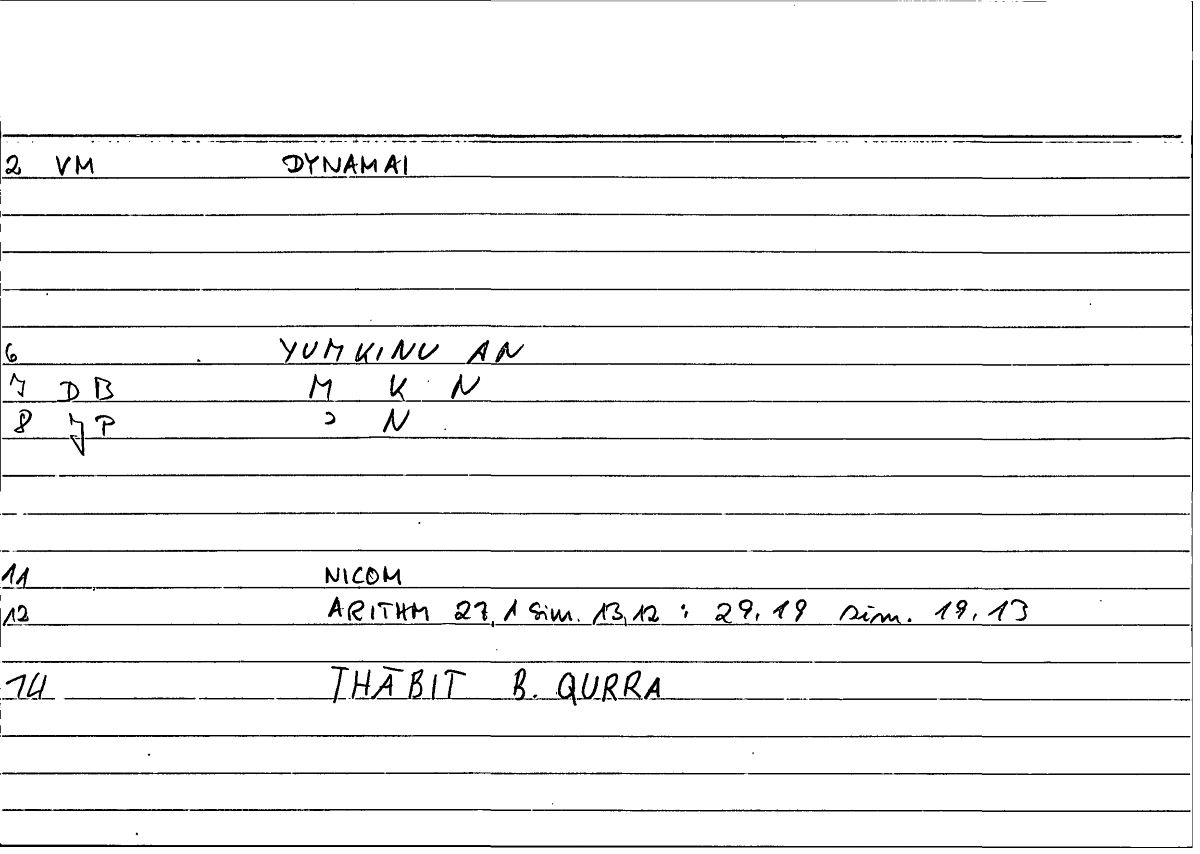 2 VM DYNAMAI
6 YUMKINU AN
7 DB M K N
8 JP ɔ N
11 NICOM
12 ARITHM 27,1 sim. 13,12 : 29,19 sim. 19,13
14 THĀBIT B. QURRA